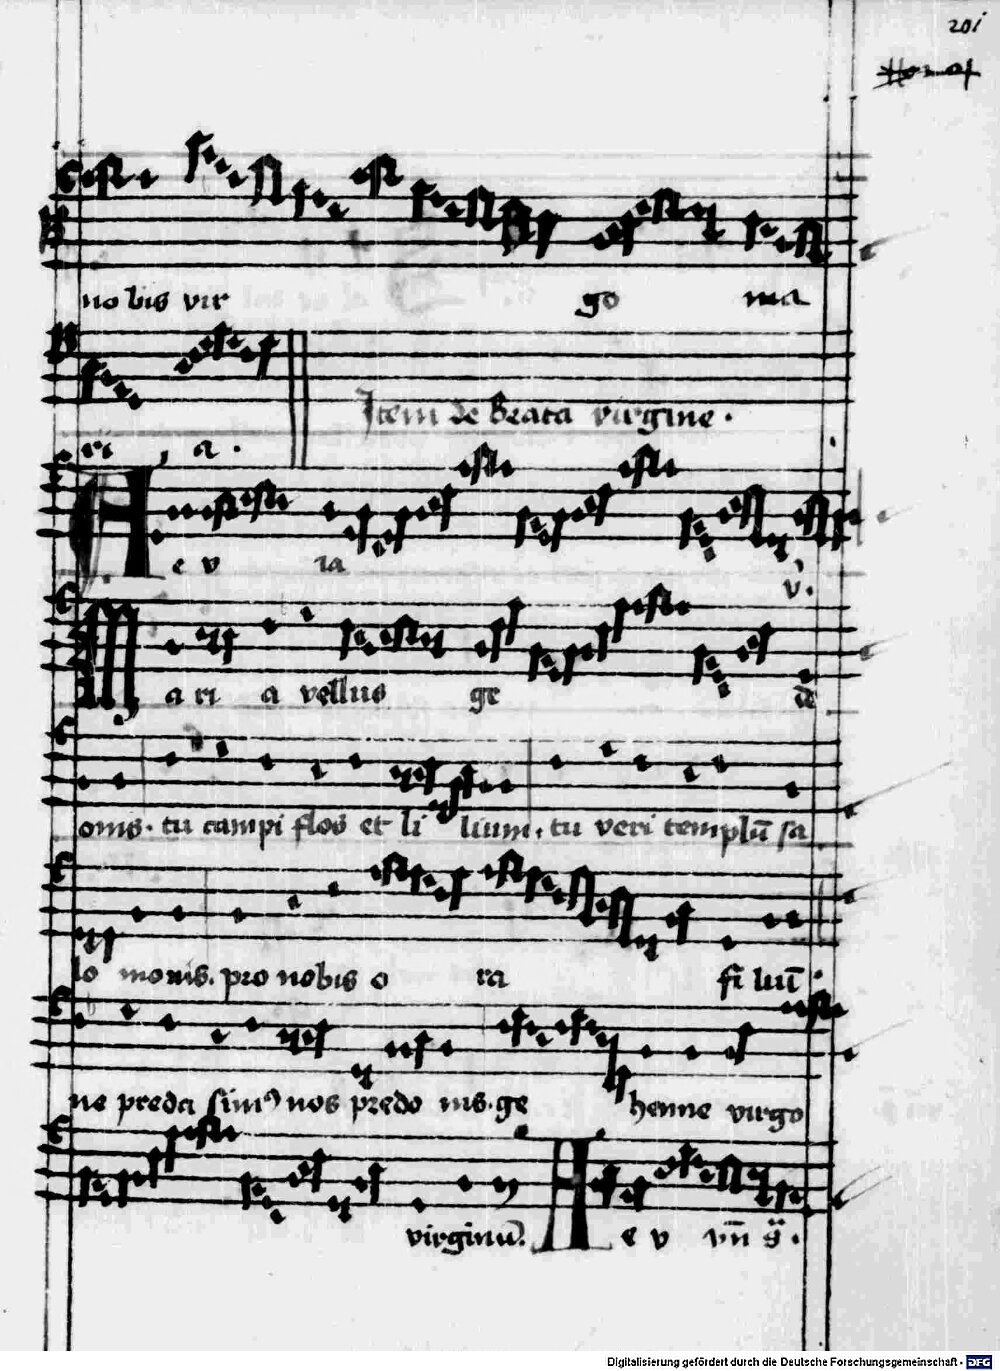 201
no bis vir go ma
ri a.
Item de Beata virgine.
A e v ia v.
M a ri a vellus ge de
onis. tu campi flos et li lium. tu veri templū sa
lo monis. pro nobis o ra fi liū.
ne preda simꝰ nos predo nis. ge henne virgo
virginū. A e v
Digitalisierung gefördert durch die Deutsche Forschungsgemeinschaft - DFG